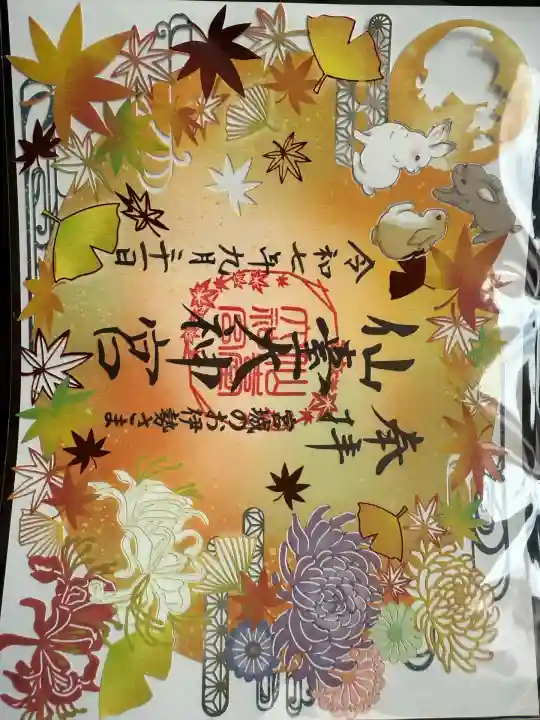 奉拝
宮城のお伊勢さま
仙臺大神宮
令和七年九月二十一日